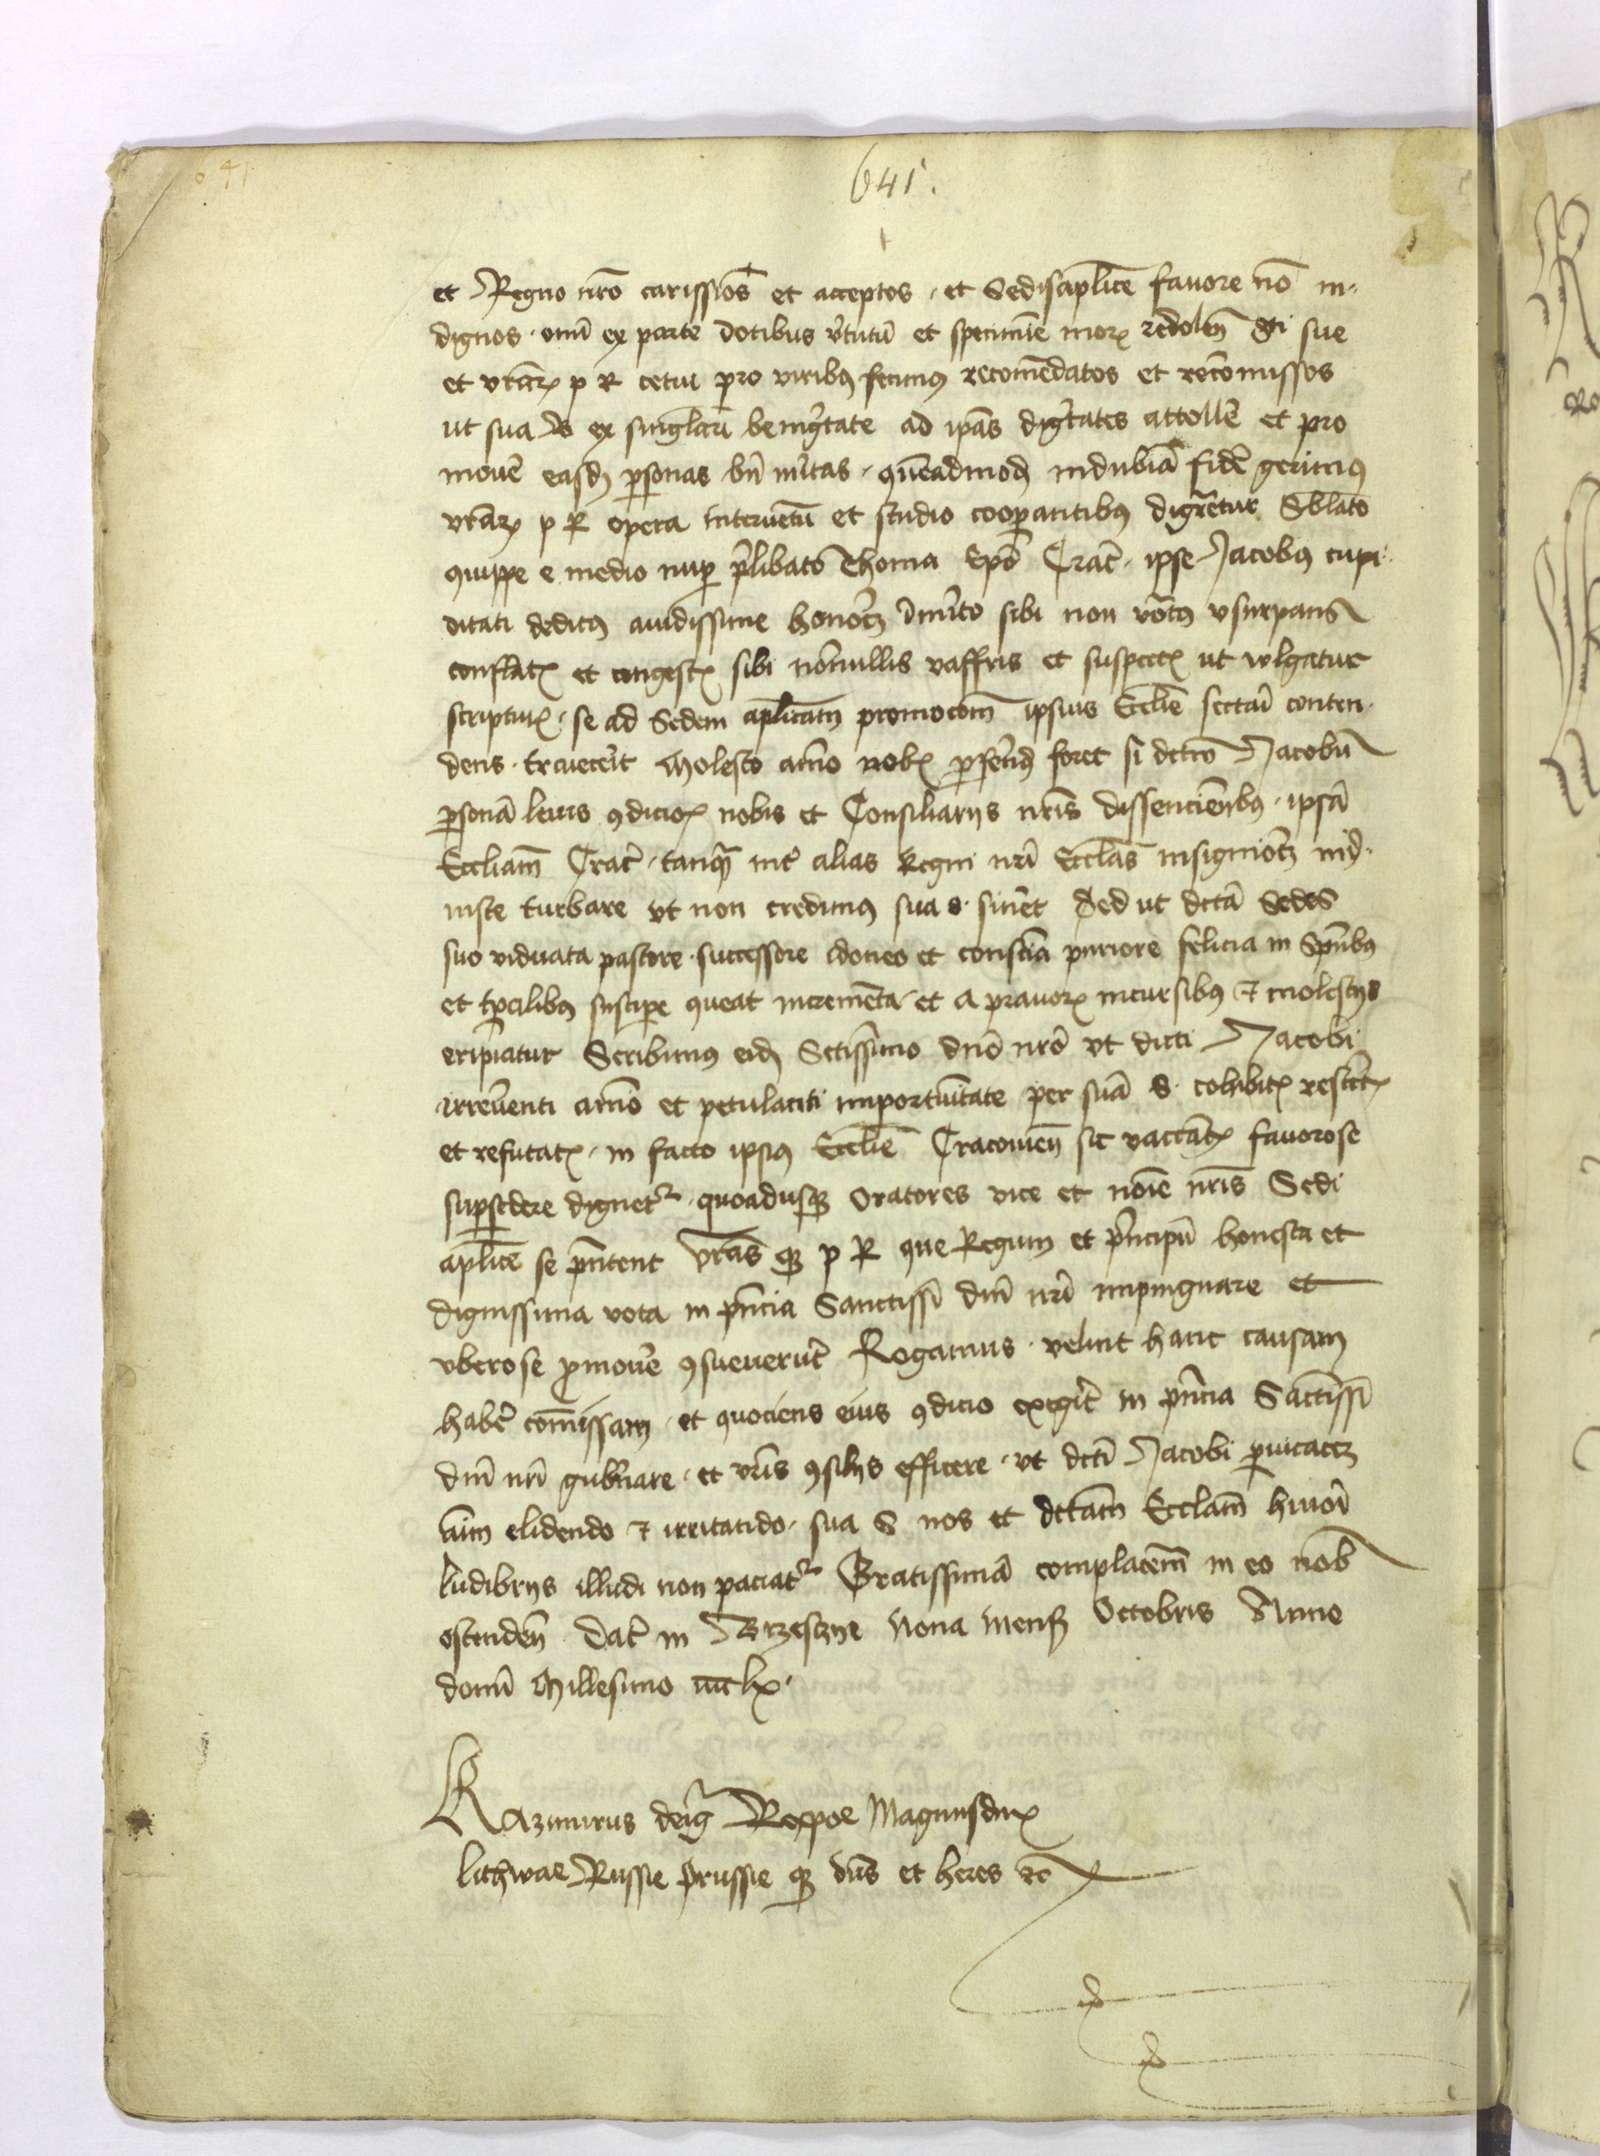 641.
et Regno nr̄o carissīos et acceptos · et Sedis aplice favore nō in-
dignos · omī ex parte dotibus v̄tutū et specimīe mor redolen̄ Sti sue
et vrār p R cetui pro virib9 fecim9 recomēdatos et recōmissos
ut sua S ex singlari beniḡtate ad ip̄as diḡtates attollē̄ et pro
movē̄ easd̄ p̄sonas bn̄ m̄itas · quēadmod̄ indubiā fidē gerim9
vrār p R opera interventū et studio coop̄antib9 diḡretur Sblato
quippe e medio nup p̄libato Thoma Ep̄o Crac̄ · ipse Jacob9 cupi-
ditati dedit9 avidissime honōē īm̄ito sibi non vocat9 usurpans
conflat et congest sibi nōnullis vaffris et suspect ut vulgatur
scriptur · se ad Sedem aplicam promocōm ipsius Ecclie sectai conten-
dens · traiecerit Molesto aīmo nob p̄ferend foret si dc̄tm Jacobū
p̄sonā levis 9dicio nobis et Consiliarijs nr̄is dissencienb9 · ipsā
Eccliam Crac̄ · tanq̄ int̄ alias Regni nr̄i Ecclas insigniōē
iuste turbare ut non credim9 sua S · sineret Sed ut dc̄tā Sedes
suo viduata pastore · successore idoneo et consc̄ia puriore felicia in Spūlib9
et tp̄alib9 suscipe queat incremēta · et a pravor incursib9 et molestijs
eripiatur Scribim9 eid̄ Sctissimo dn̄o nr̄o ut dicti Jacobi
irrev̄enti aīmo et petulanti importuītate per suā S · cohibit restrict
et refutat · in facto ipsi9 Ecclie Cracovien̄ sic vacant favorose
sup̄sedere dignet̄ · quoadusq̄ Oratores vice et noīe nr̄is Sedi
aplice se p̄ntent Vrās q̄ p R que Regum et p̄ncipū honesta et
dignissima vota in p̄ncia Sanctissi dn̄i nr̄i impingnare et
uberose p̄movē̄ 9sueverūt Rogamus · velint hanc causam
habē̄ com̄issam · et quociens eius 9dicio exegit̄ in p̄ncia Sāctissi
dn̄i nr̄i gub̄nare · et vr̄is 9silijs efficere · ut dc̄ti Jacobi p̄vicacem
aīm elidendo et irritando · sua S nos et dc̄tam Ecclam hmōi
ludibrijs illudi non paciat̄ Gratissimā complacenm̄ in eo nob
ostenden̄ Dat̄ in Brzesczye Nona mens Octobris Anno
domī Millesimo iiiic lx ·
Kazimirus dei g̃ Rex poe Magnusdux
Lithwae Russie prussie q̄ dn̄s et heres etc